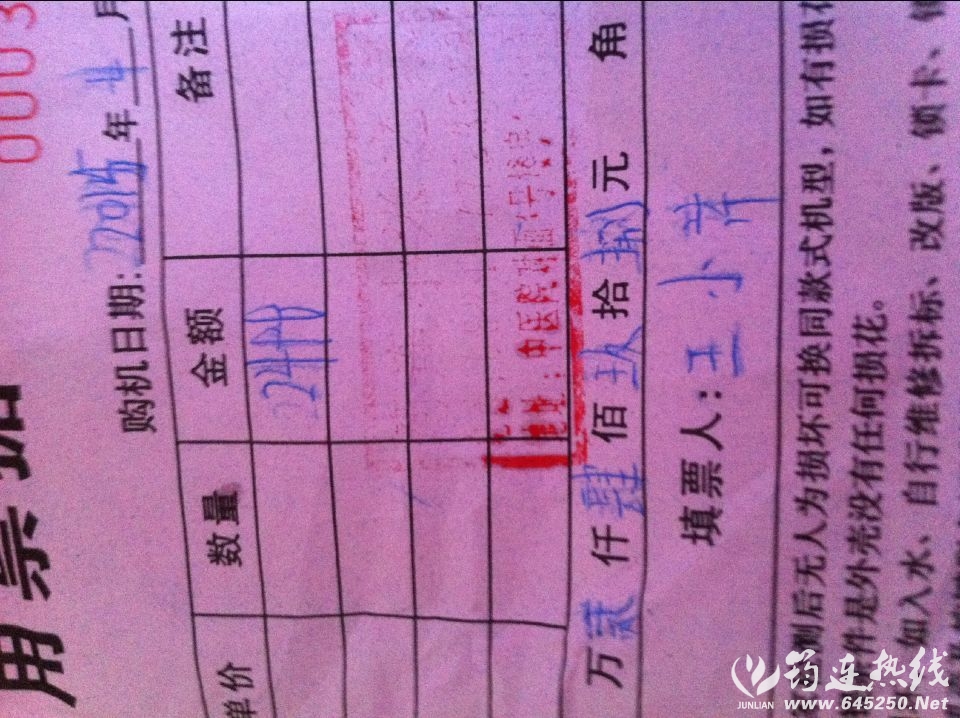 0003
用票据
购机日期: 2015年4月
单价 数量 金额 备注
2498
中医院
万贰仟肆佰玖拾捌元 角
填票人: 王小
测后无人为损坏可换同款式机型，如有损
件是外壳没有任何损花。
如入水、自行维修拆标、改版、锁卡、
筠连热线
JUNLIAN www.645250.Net